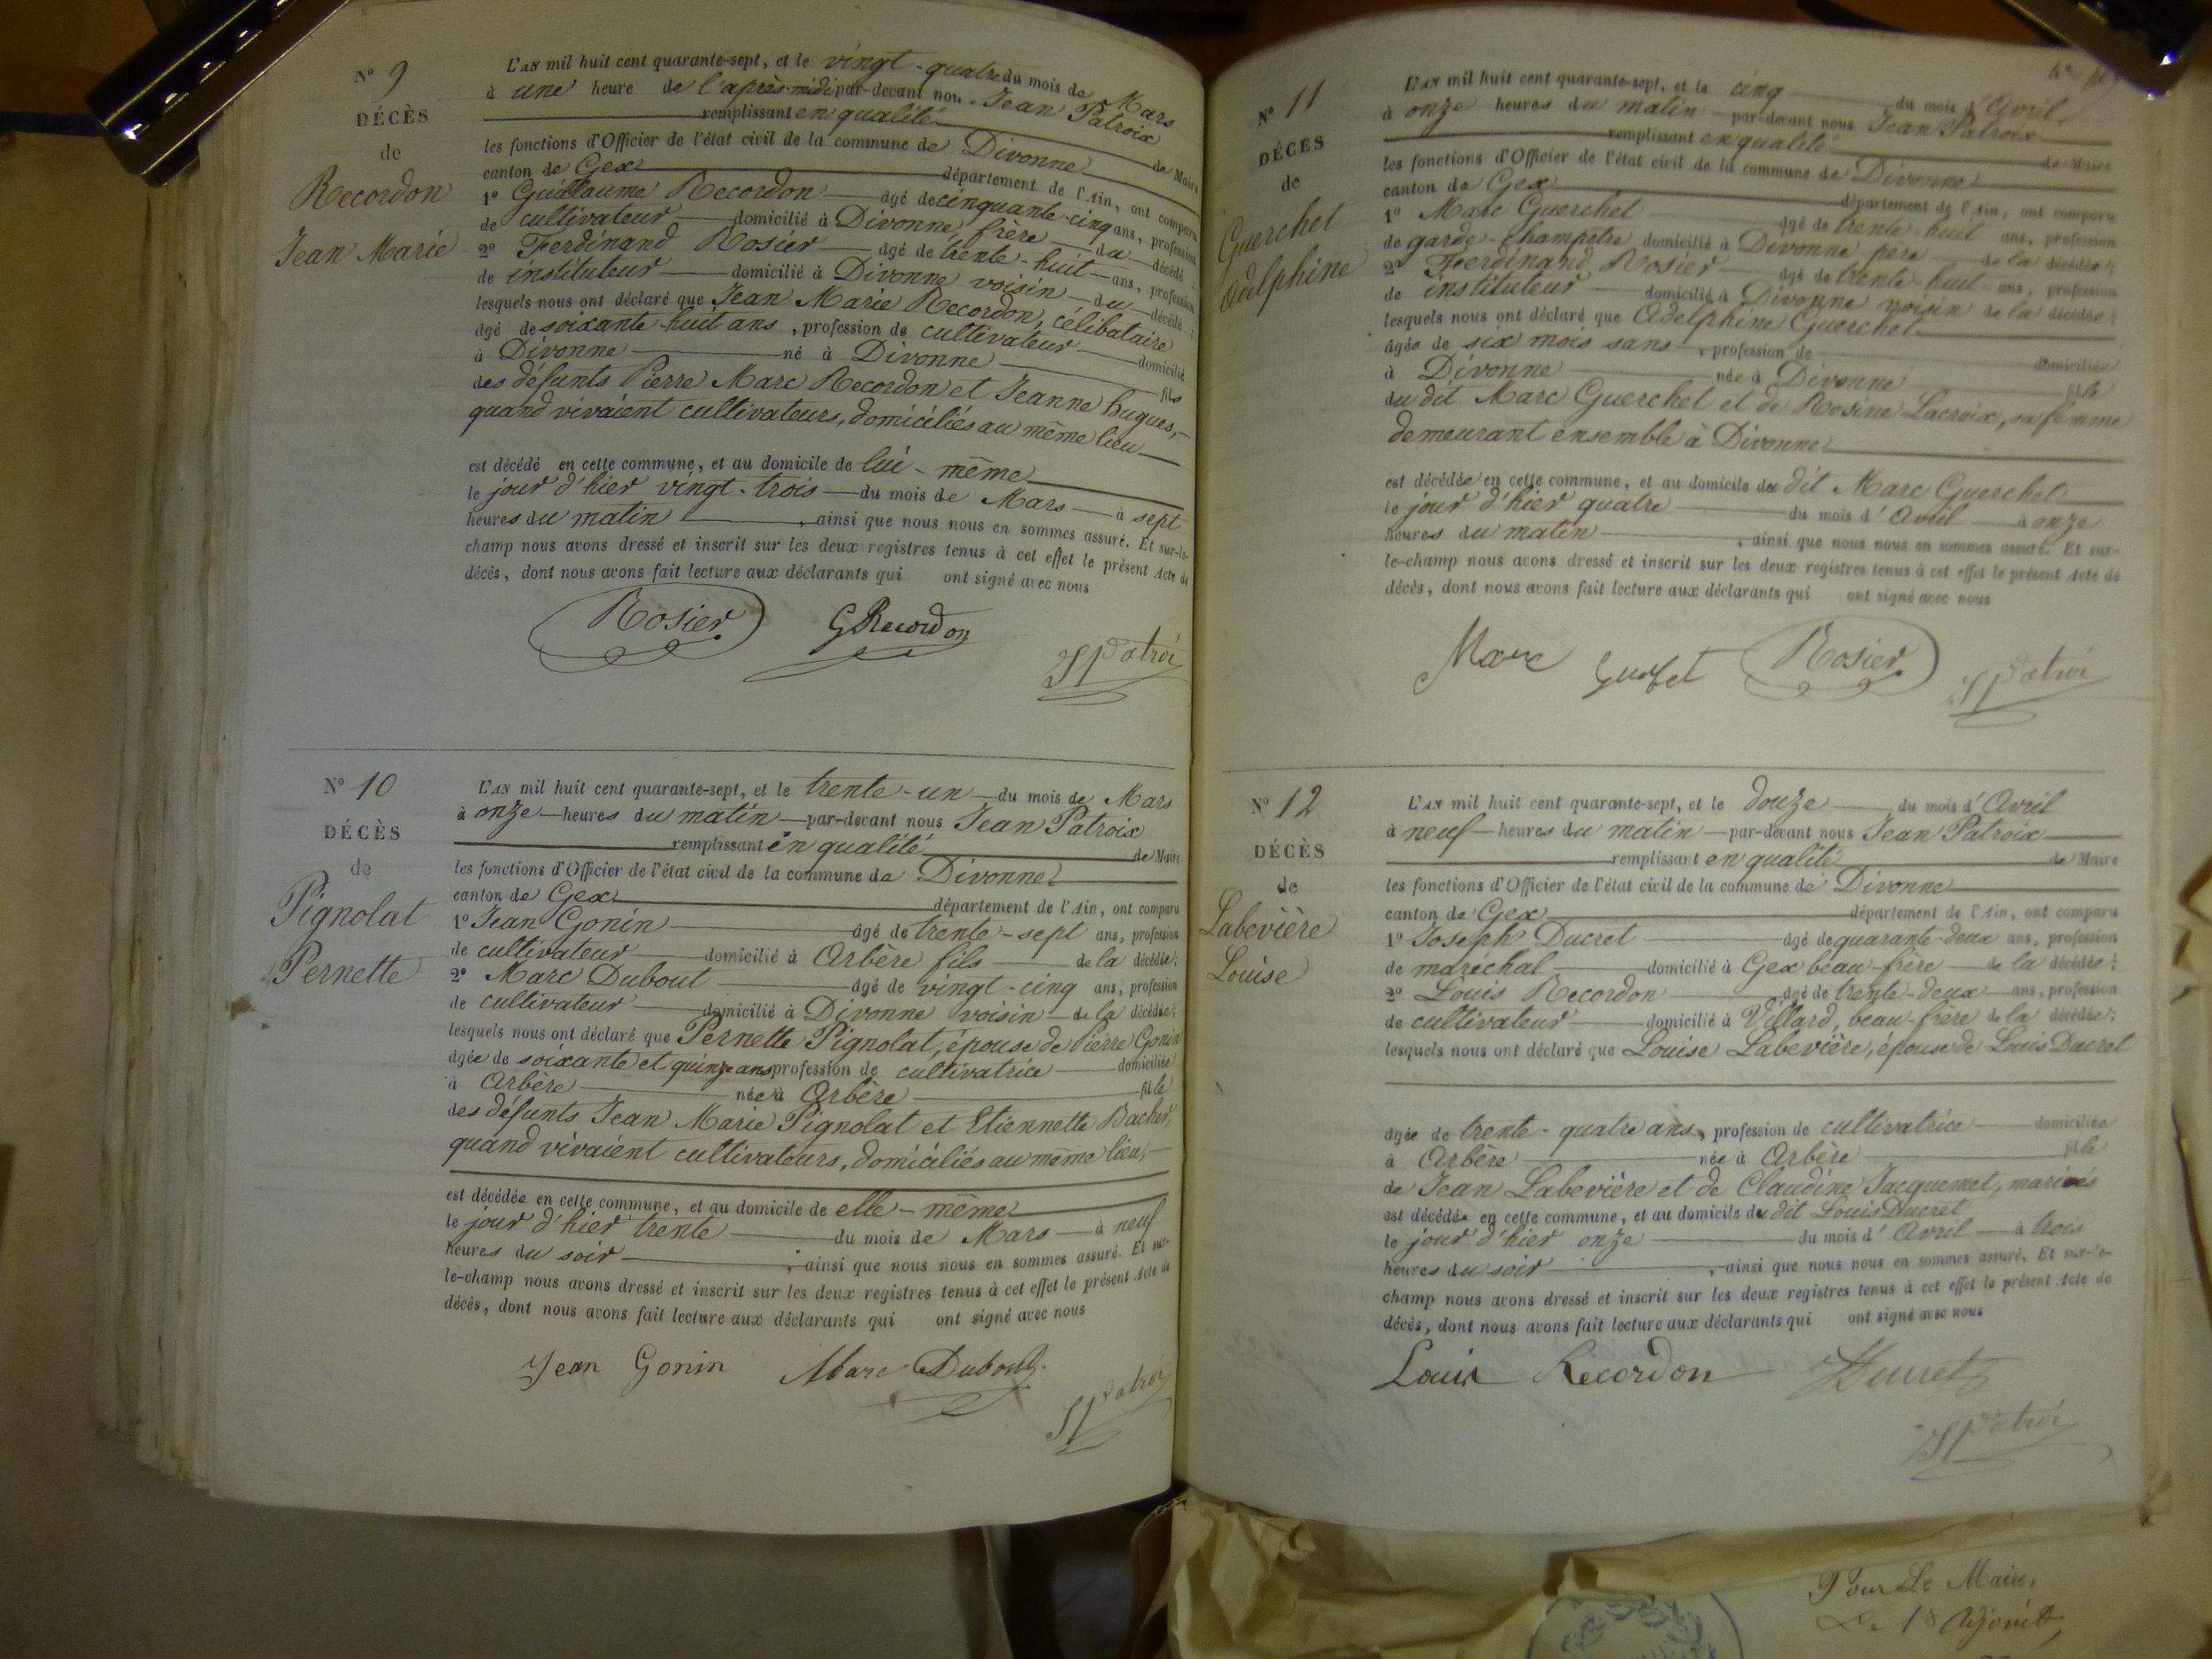 N° 9
DÉCÈS
de
Recordon
Jean Marie
L'AN mil huit cent quarante-sept, et le vingt-quatre du mois de Mars
à une heure de l'après-midi par-devant nous Jean Patroix
remplissant en qualité de Maire
les fonctions d'Officier de l'état civil de la commune de Divonne
canton de Gex département de l'Ain, ont comparu
1° Guillaume Recordon âgé de cinquante-cinq ans, profession
de cultivateur domicilié à Divonne, frère du décédé;
2° Ferdinand Rosier âgé de trente-huit ans, profession
de instituteur domicilié à Divonne voisin du décédé;
lesquels nous ont déclaré que Jean Marie Recordon, célibataire
âgé de soixante huit ans, profession de cultivateur domicilié
à Divonne né à Divonne fils
des défunts Pierre Marc Recordon et Jeanne hugues,
quand vivaient cultivateurs, domiciliés au même lieu
est décédé en cette commune, et au domicile de lui-même
le jour d'hier vingt-trois du mois de Mars à sept
heures du matin, ainsi que nous nous en sommes assuré. Et sur-le-
champ nous avons dressé et inscrit sur les deux registres tenus à cet effet le présent Acte de
décès, dont nous avons fait lecture aux déclarants qui ont signé avec nous
Rosier G Recordon
J Patroi
N° 10
DÉCÈS
de
Pignolat
Pernette
L'AN mil huit cent quarante-sept, et le trente-un du mois de Mars
à onze heures du matin par-devant nous Jean Patroix
remplissant en qualité de Maire
les fonctions d'Officier de l'état civil de la commune de Divonne
canton de Gex département de l'Ain, ont comparu
1° Jean Gonin âgé de trente-sept ans, profession
de cultivateur domicilié à Arbère fils de la décédée;
2° Marc Dubout âgé de vingt-cinq ans, profession
de cultivateur domicilié à Divonne voisin de la décédée;
lesquels nous ont déclaré que Pernette Pignolat, épouse de Pierre Gonin
âgée de soixante et quinze ans profession de cultivatrice domiciliée
à Arbère née à Arbère fille
des défunts Jean Marie Pignolat et Etiennette Bacher,
quand vivaient cultivateurs, domiciliés au même lieu,
est décédée en cette commune, et au domicile de elle-même
le jour d'hier trente du mois de Mars à neuf
heures du soir, ainsi que nous nous en sommes assuré. Et sur-
le-champ nous avons dressé et inscrit sur les deux registres tenus à cet effet le présent Acte de
décès, dont nous avons fait lecture aux déclarants qui ont signé avec nous
Jean Gonin Marc Dubout
J Patroi
N° 11
DÉCÈS
de
Guerchet
Adelphine
L'AN mil huit cent quarante-sept, et le cinq du mois d'Avril
à onze heures du matin par-devant nous Jean Patroix
remplissant en qualité de Maire
les fonctions d'Officier de l'état civil de la commune de Divonne
canton de Gex département de l'Ain, ont comparu
1° Marc Guerchet âgé de trente-huit ans, profession
de garde-champêtre domicilié à Divonne père de la décédée;
2° Ferdinand Rosier âgé de trente-huit ans, profession
de instituteur domicilié à Divonne voisin de la décédée;
lesquels nous ont déclaré que Adelphine Guerchet
âgée de six mois sans, profession de domiciliée
à Divonne née à Divonne fille
du dit Marc Guerchet et de Rosine Lacroix, sa femme
demeurant ensemble à Divonne
est décédée en cette commune, et au domicile du dit Marc Guerchet
le jour d'hier quatre du mois d'Avril à onze
heures du matin, ainsi que nous nous en sommes assuré. Et sur-
le-champ nous avons dressé et inscrit sur les deux registres tenus à cet effet le présent Acte de
décès, dont nous avons fait lecture aux déclarants qui ont signé avec nous
Marc Rosier
J Patroi
N° 12
DÉCÈS
de
Labevière
Louise
L'AN mil huit cent quarante-sept, et le douze du mois d'Avril
à neuf heures du matin par-devant nous Jean Patroix
remplissant en qualité de Maire
les fonctions d'Officier de l'état civil de la commune de Divonne
canton de Gex département de l'Ain, ont comparu
1° Joseph Ducret âgé de quarante-deux ans, profession
de maréchal domicilié à Gex beau-frère de la décédée;
2° Louis Recordon âgé de trente-deux ans, profession
de cultivateur domicilié à Villard, beau-frère de la décédée;
lesquels nous ont déclaré que Louise Labevière, épouse de Louis Ducret
âgée de trente-quatre ans, profession de cultivatrice domiciliée
à Arbère née à Arbère fille
de Jean Labevière et de Claudine Jacquemet, mariés
est décédée en cette commune, et au domicile du dit Louis Ducret
le jour d'hier onze du mois d'Avril à trois
heures du soir, ainsi que nous nous en sommes assuré. Et sur-le-
champ nous avons dressé et inscrit sur les deux registres tenus à cet effet le présent Acte de
décès, dont nous avons fait lecture aux déclarants qui ont signé avec nous
Louis Recordon J Ducret
J Patroi
Pour Le Maire,